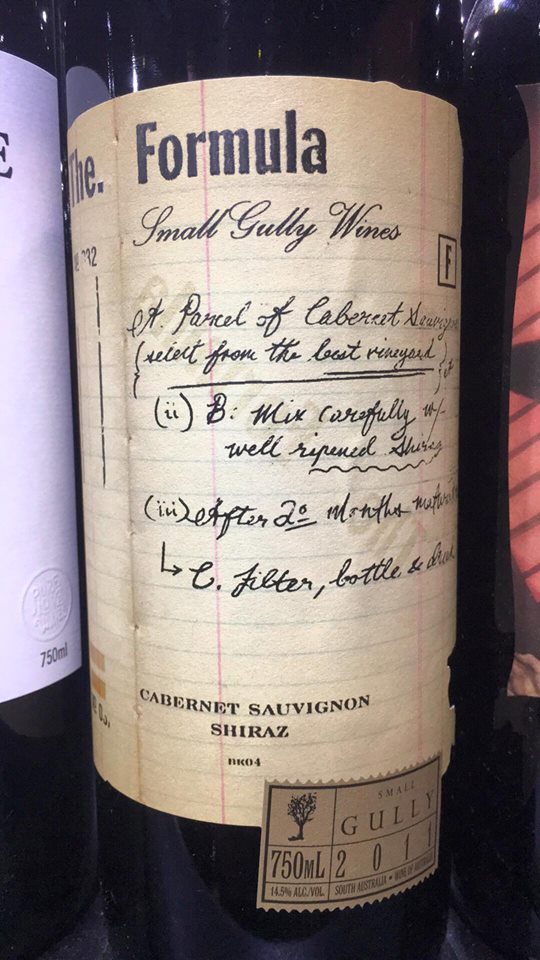 The. Formula
Small Gully Wines
F
A. Parcel of Cabernet
(select from the best vineyard)
(ii) B: Mix carefully w/
well ripened Shiraz
(iii) After 20 months
↳ C. Filter, bottle &
CABERNET SAUVIGNON
SHIRAZ
BK04
SMALL
GULLY
750ML 2 0 1 1
14.5% ALC./VOL. SOUTH AUSTRALIA • WINE OF AUSTRALIA
E
750ml